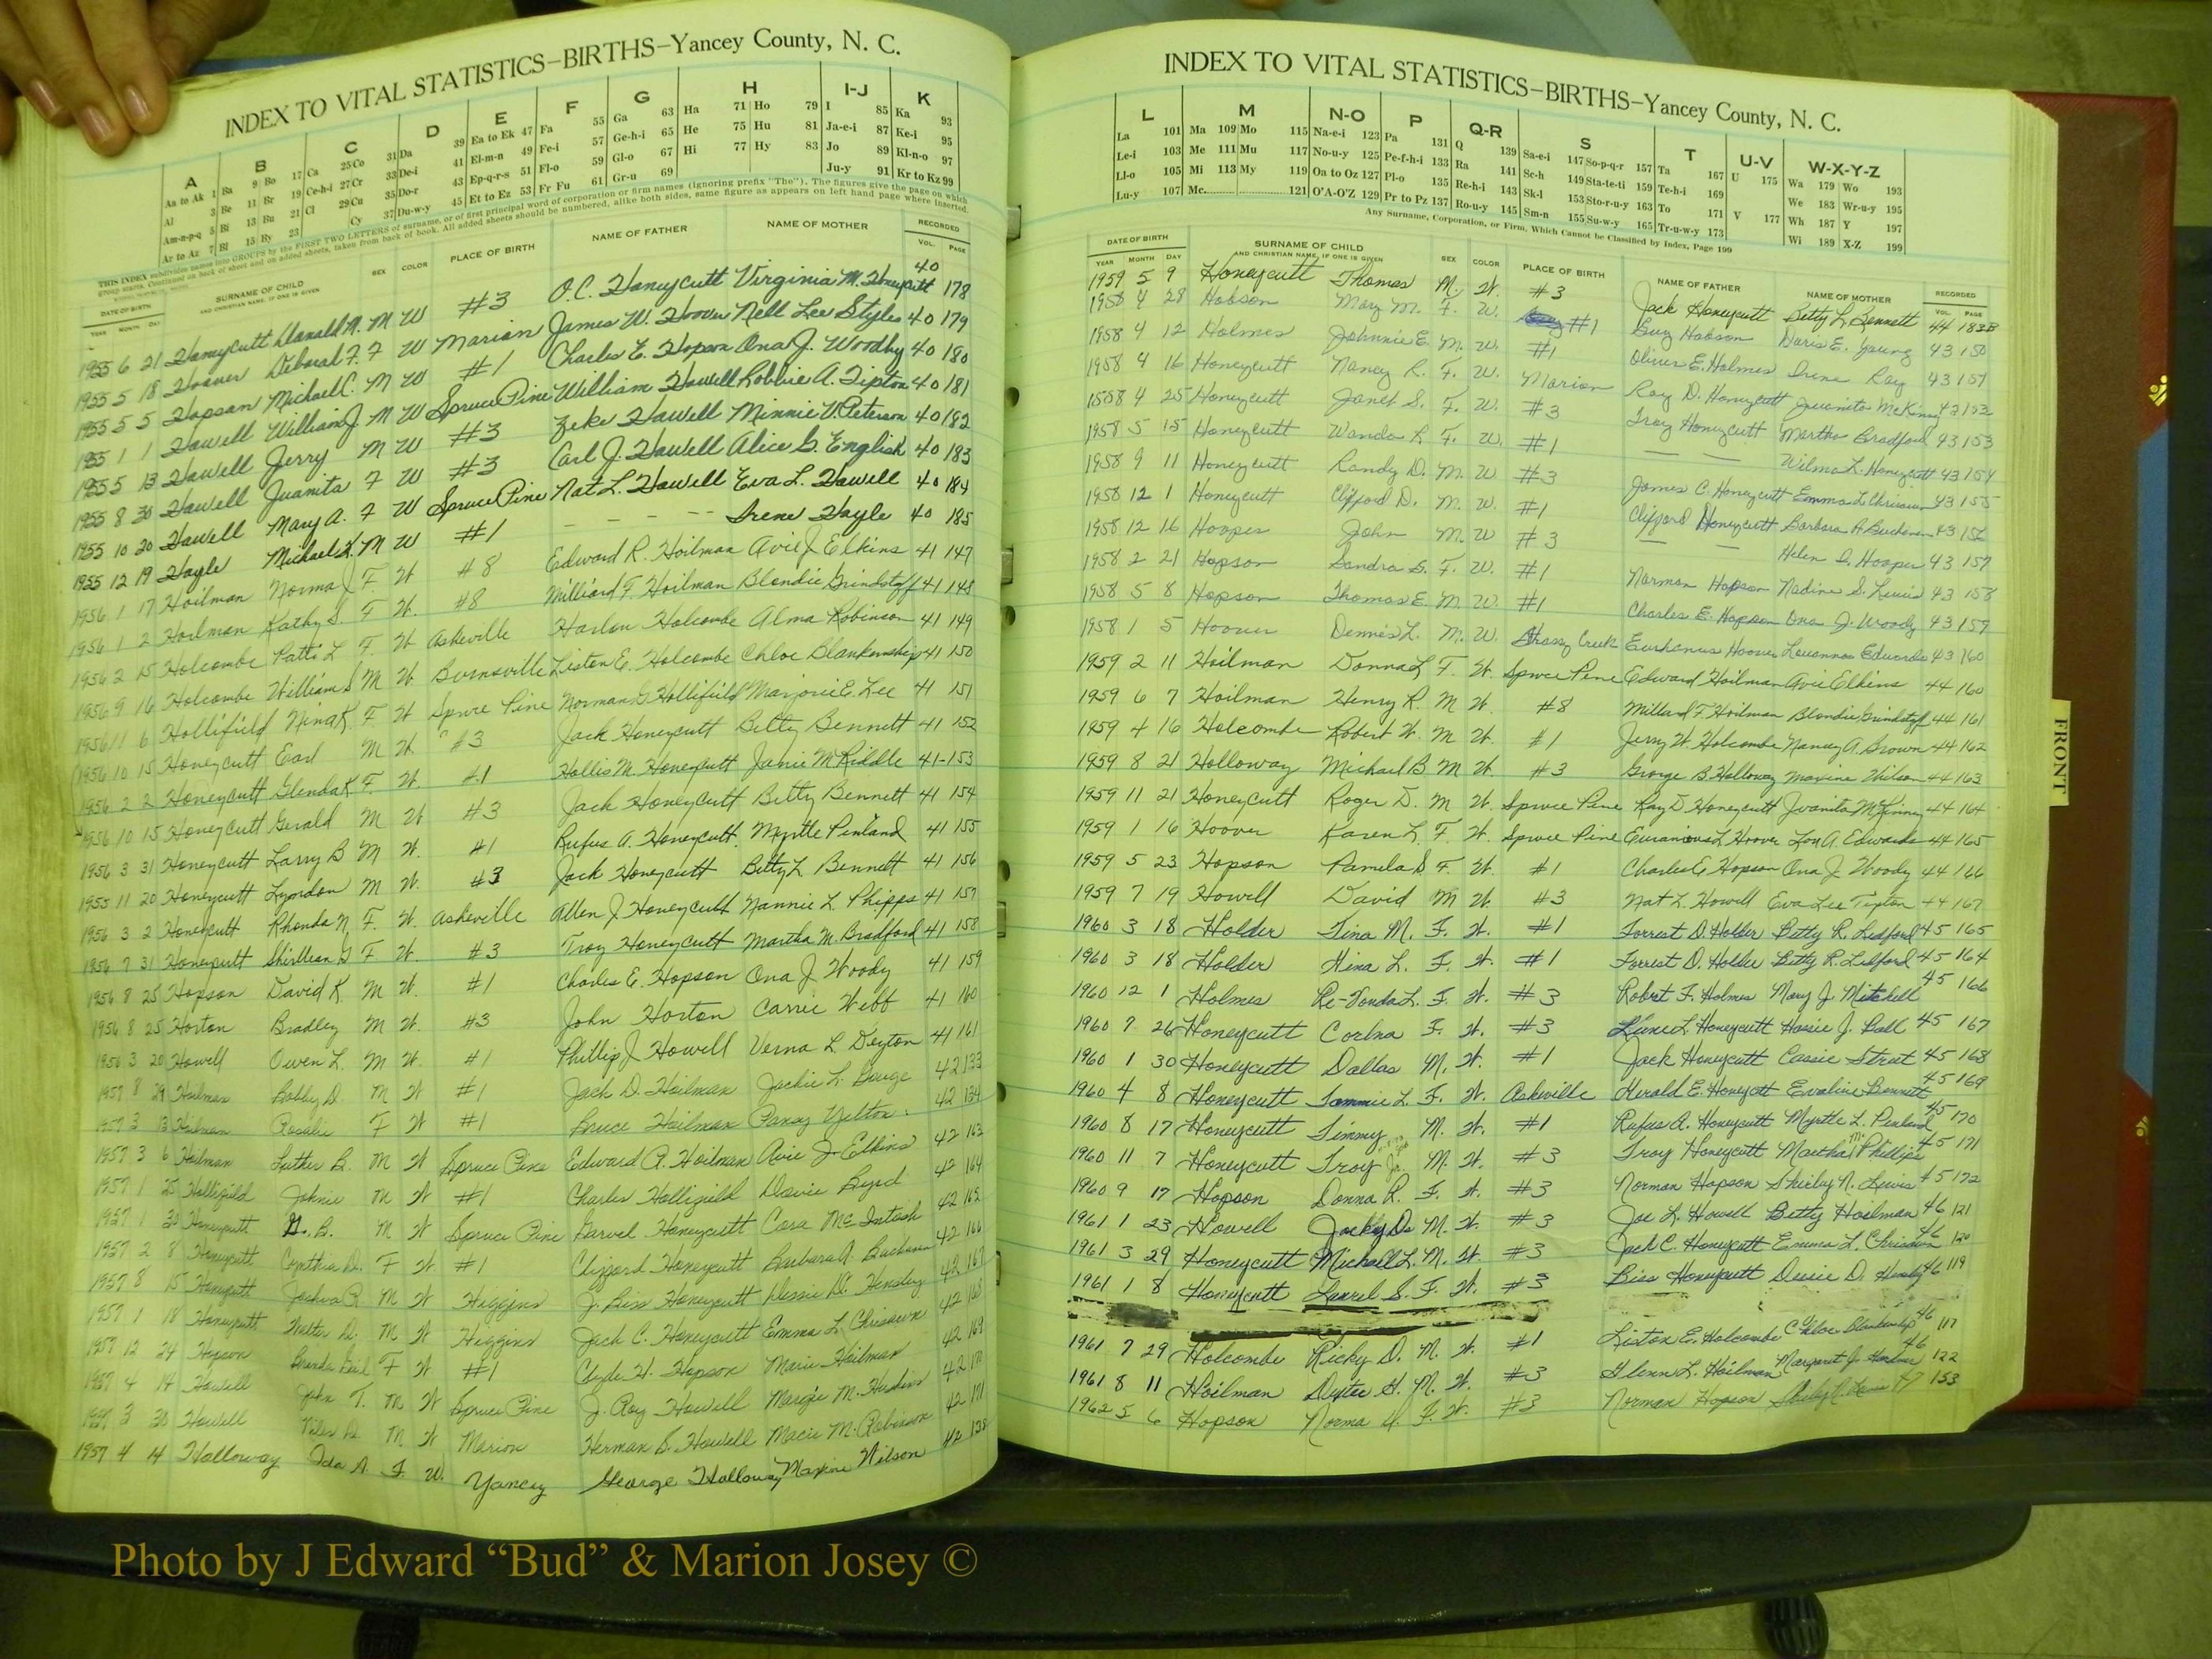 INDEX TO VITAL STATISTICS–BIRTHS–Yancey County, N. C.
A B C D E F G H I-J K
Aa to Ak 1 Ba 9 Bo 17 Ca 25 Co 31 Da 39 Ea to Ek 47 Fa 55 Ga 63 Ha 71 Ho 79 I 85 Ka 93
Al 3 Be 11 Br 19 Ce-h-i 27 Cr 33 De-i 41 El-m-n 49 Fe-i 57 Ge-h-i 65 He 75 Hu 81 Ja-e-i 87 Ke-i 95
Am-n-p-q 5 Bi 13 Bu 21 Cl 29 Cu 35 Do-r 43 Ep-q-r-s 51 Fl-o 59 Gl-o 67 Hi 77 Hy 83 Jo 89 Kl-n-o 97
Ar to Az 7 Bl 15 By 23 Cy 37 Du-w-y 45 Et to Ez 53 Fr Fu 61 Gr-u 69 Ju-y 91 Kr to Kz 99
THIS INDEX subdivides names into GROUPS by the FIRST TWO LETTERS of surname, or of first principal word of corporation or firm names (ignoring prefix "The"). The figures give the page on which
group starts. Continued on back of sheet and on added sheets, taken from back of book. All added sheets should be numbered, alike both sides, same figure as appears on left hand page where inserted.
DATE OF BIRTH SURNAME OF CHILD SEX COLOR PLACE OF BIRTH NAME OF FATHER NAME OF MOTHER RECORDED
YEAR MONTH DAY AND CHRISTIAN NAME, IF ONE IS GIVEN VOL. PAGE
1955 6 21 Honeycutt Donald R. M W #3 O.C. Honeycutt Virginia M. Honeycutt 40 178
1955 5 18 Hoover Deborah F. F W Marion James W. Hoover Nell Lee Styles 40 179
1955 5 5 Hopson Michael C. M W #1 Charles E. Hopson Ona J. Woodby 40 180
1955 1 1 Howell William J. M W Spruce Pine William Howell Robbie A. Tipton 40 181
1955 5 13 Howell Jerry M W #3 Zeke Howell Minnie V. Peterson 40 182
1955 8 30 Howell Juanita F W #3 Carl J. Howell Alice G. English 40 183
1955 10 20 Howell Mary A. F W Spruce Pine Nat L. Howell Eva L. Howell 40 184
1955 12 19 Hoyle Michael L. M W #1 – – – – Irene Hoyle 40 185
1956 1 17 Hoilman Norma J. F. W #8 Edward R. Hoilman Avie J. Elkins 41 147
1956 1 2 Hoilman Kathy S. F W. #8 Milliard F. Hoilman Blondie Grindstaff 41 148
1956 2 15 Holcombe Patti L F W Asheville Harlon Holcombe Alma Robinson 41 149
1956 9 16 Holcombe William S M W Burnsville Liston E. Holcombe Chloe Blankenship 41 150
1956 11 6 Hollifield Nina K. F W Spruce Pine Norman G Hollifield Marjorie E. Lee 41 151
1956 10 15 Honeycutt Earl M W. #3 Jack Honeycutt Betty Bennett 41 152
1956 2 2 Honeycutt Glenda K F. W. #1 Hollis M. Honeycutt Janie M Riddle 41-153
1956 10 15 Honeycutt Gerald M W #3 Jack Honeycutt Betty Bennett 41 154
1956 3 31 Honeycutt Larry B M W. #1 Rufus A. Honeycutt. Myrtle Penland 41 155
1955 11 20 Honeycutt Lyndon M W. #3 Jack Honeycutt Betty L Bennett 41 156
1956 3 2 Honeycutt Rhonda N. F. W. Asheville Allen J. Honeycutt Nannie L. Phipps 41 157
1956 7 31 Honeycutt F W. #3 Troy Honeycutt Martha M. Bradford 41 158
1956 8 25 Hopson David K. M W. #1 Charles E. Hopson Ona J. Woody 41 159
1956 8 25 Horton Bradley M W. #3 John Horton Carrie Webb 41 160
1956 3 20 Howell Owen L. M W. #1 Phillip J Howell Verna L. Deyton 41 161
1957 8 29 Hoilman Bobby D. M W #1 Jack D. Hoilman Jackie L. 42 133
1957 3 13 Hoilman Rosalie F W #1 Bruce Hoilman Pansy Yelton 42 134
1957 3 6 Hoilman Luther B. M W Spruce Pine Edward R. Hoilman Avie J. Elkins 42 163
1957 1 25 Hollifield Johnie M W #1 Charles Hollifield Dovie Byrd 42 164
1957 1 30 Honeycutt B. M W Spruce Pine Garvel Honeycutt Cora McIntosh 42 165
1957 2 8 Honeycutt Cynthia D. F W #1 Clifford Honeycutt Barbara A. Buchanan 42 166
1957 8 15 Honeycutt Joshua R M W Higgins J. Biss Honeycutt Dessie D. Hensley 42 167
1957 1 18 Honeycutt Walter D. M W Higgins Jack C. Honeycutt Emma L. Chrisawn 42 168
1957 12 24 Hopson Brenda Gail F W #1 Clyde H. Hopson Marie Hoilman 42 169
1957 4 14 Howell John T. M W Spruce Pine J. Roy Howell Margie M. 42 170
1957 3 30 Howell M W Marion Herman B. Howell Macie M. Robinson 42 171
1957 4 14 Holloway Ida A. F. W. Yancey George Holloway Maxine Wilson 42 138
INDEX TO VITAL STATISTICS–BIRTHS–Yancey County, N. C.
L M N-O P Q-R S T U-V W-X-Y-Z
La 101 Ma 109 Mo 115 Na-e-i 123 Pa 131 Q 139 Sa-e-i 147 So-p-q-r 157 Ta 167 U 175 Wa 179 Wo 193
Le-i 103 Me 111 Mu 117 No-u-y 125 Pe-f-h-i 133 Ra 141 Sc-h 149 Sta-te-ti 159 Te-h-i 169 We 183 Wr-u-y 195
Ll-o 105 Mi 113 My 119 Oa to Oz 127 Pl-o 135 Re-h-i 143 Sk-l 153 Sto-r-u-y 163 To 171 V 177 Wh 187 Y 197
Lu-y 107 Mc 121 O'A-O'Z 129 Pr to Pz 137 Ro-u-y 145 Sm-n 155 Su-w-y 165 Tr-u-w-y 173 Wi 189 X-Z 199
Any Surname, Corporation, or Firm, Which Cannot be Classified by Index, Page 199
DATE OF BIRTH SURNAME OF CHILD SEX COLOR PLACE OF BIRTH NAME OF FATHER NAME OF MOTHER RECORDED
YEAR MONTH DAY AND CHRISTIAN NAME, IF ONE IS GIVEN VOL. PAGE
1959 5 9 Honeycutt Thomas M. W. #3 Jack Honeycutt Betty L. Bennett 44 183B
1958 4 28 Hobson Mary M. F. W. #1 Guy Hobson Doris E. Young 43 150
1958 4 12 Holmes Johnnie E. M. W. #1 Oliver E. Holmes Irene Ray 43 151
1958 4 16 Honeycutt Nancy R. F. W. Marion Roy D. Honeycutt Juanita McKinney 43 152
1958 4 25 Honeycutt Janet S. F. W. #3 Troy Honeycutt Martha Bradford 43 153
1958 5 15 Honeycutt Wanda R F. W. #1 — — Wilma L. Honeycutt 43 154
1958 9 11 Honeycutt Randy D. M. W #3 James C. Honeycutt Emma L. Chrisawn 43 155
1958 12 1 Honeycutt Clifford D. M. W. #1 Clifford Honeycutt Barbara A. Buchanan 43 156
1958 12 16 Hooper John M. W #3 — — Helen D. Hooper 43 157
1958 2 21 Hopson Sandra S. F. W. #1 Norman Hopson Nadine S. Lewis 43 158
1958 5 8 Hopson Thomas E. M W. #1 Charles E. Hopson Ona J. Woody 43 159
1958 1 5 Hoover Dennis L. M. W. Brassy Creek Eurhanus Hoover Louanna Edwards 43 160
1959 2 11 Hoilman Donna L F. W. Spruce Pine Edward Hoilman Avie Elkins 44 160
1959 6 7 Hoilman Henry R. M W. #8 Millard F. Hoilman Blondie Grindstaff 44 161
1959 4 16 Holcombe Robert W. M W. #1 Jerry W. Holcombe Nancy A. Brown 44 162
1959 8 21 Holloway Michael B M W. #3 George B Holloway Maxine Wilson 44 163
1959 11 21 Honeycutt Roger D. M W. Spruce Pine Ray D Honeycutt Juanita McKinney 44 164
1959 1 16 Hoover Karen L. F. W. Spruce Pine L Hoover Lou A. Edwards 44 165
1959 5 23 Hopson Pamela S F. W. #1 Charles E Hopson Ona J. Woody 44 166
1959 7 19 Howell David M W. #3 Nat L. Howell Eva Lee Tipton 44 167
1960 3 18 Holder Tina M. F. W. #1 Forrest D. Holder Betty R. Ledford 45 165
1960 3 18 Holder Nina L. F. W. #1 Forrest D. Holder Betty R. Ledford 45 164
1960 12 1 Holmes Re-Vonda L. F. W. #3 Robert F. Holmes Mary J. Mitchell 45 166
1960 7 26 Honeycutt F. W. #3 L. Honeycutt J. Ball 45 167
1960 1 30 Honeycutt Dallas M. W. #1 Jack Honeycutt Cassie Street 45 168
1960 4 8 Honeycutt Tammie L. F. W. Asheville Herald E. Honeycutt Evaline Bennett 45 169
1960 8 17 Honeycutt Timmy M. W. #1 Rufus A. Honeycutt Myrtle L. Penland 45 170
1960 11 7 Honeycutt Troy Jr. M. W. #3 Troy Honeycutt Martha M. Phillips 45 171
1960 9 17 Hopson Donna R. F. W. #3 Norman Hopson Shirley N. Lewis 45 172
1961 1 23 Howell Jacky D. M. W. #3 Joe L. Howell Betty Hoilman 46 121
1961 3 29 Honeycutt Michael L. M. W. #3 Jack C. Honeycutt Emma L. Chrisawn 46 120
1961 1 8 Honeycutt Laurel S. F. W. #3 Biss Honeycutt Dessie D. Hensley 46 119
1961 7 29 Holcombe Ricky D. M. W. #1 Liston E. Holcombe Chloe Blankenship 46 117
1961 8 11 Hoilman Dexter H. M. W. #3 Glenn L. Hoilman Margaret J. 46 122
1962 5 6 Hopson Norma F. W. #3 Norman Hopson Shirley N. Lewis 47 153
FRONT
Photo by J Edward “Bud” & Marion Josey ©